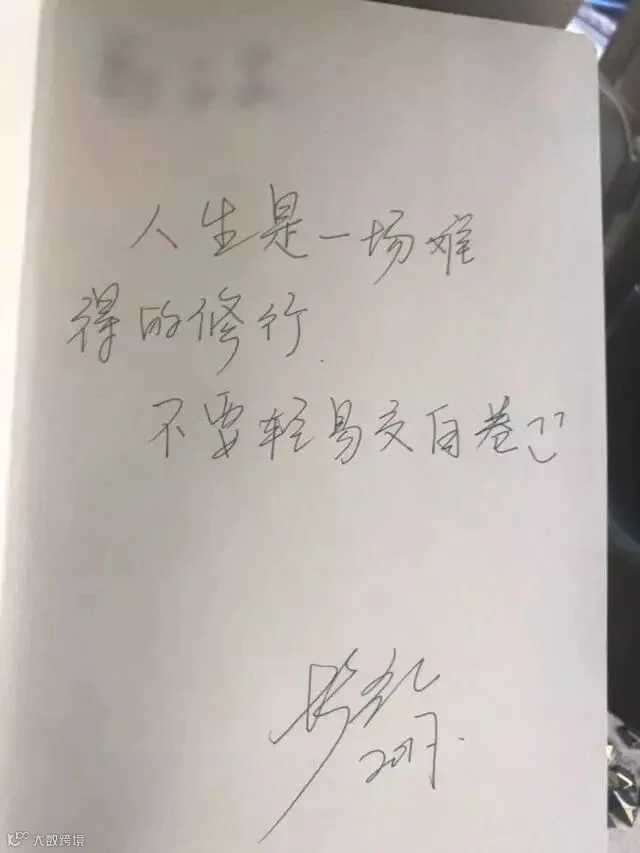 人生是一场难
得的修行.
不要轻易交白卷
2017.
大数跨境